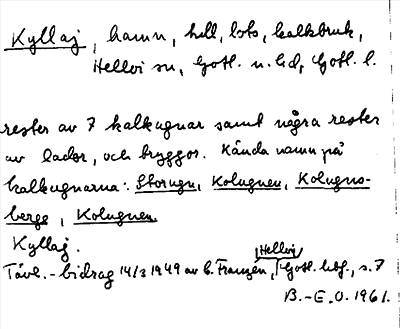 Kyllaj, hamn, häll, lots, kalkbruk,
Hellvi sn, Gotl. n. hd, Gotl. l.
rester av 7 kalkugnar samt några rester
av lador, och bryggor. Kända namn på
kalkugnarna: Storugn, Kolugnen, Kolugns-
berge, Kolugnen
Kyllaj.
Hellvi,
Tävl.-bidrag 14/3 1949 av C. Franzén, Gotl. , s. 7
B.-E. O. 1961.